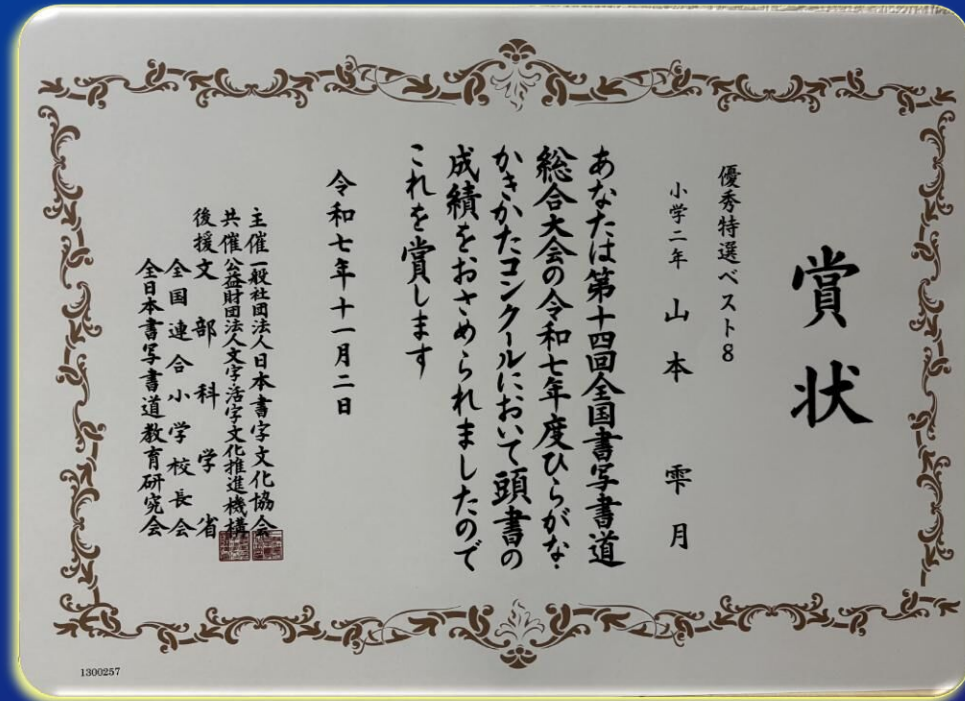 賞状
優秀特選ベスト8
小学二年 山本 雫月
あなたは第十四回全国書写書道
総合大会の令和七年度ひらがな・
かきかたコンクールにおいて頭書の
成績をおさめられましたので
これを賞します
令和七年十一月二日
主催 一般社団法人日本書字文化協会
共催 公益財団法人文字活字文化推進機構
後援 文部科学省
全国連合小学校長会
全日本書写書道教育研究会
1300257